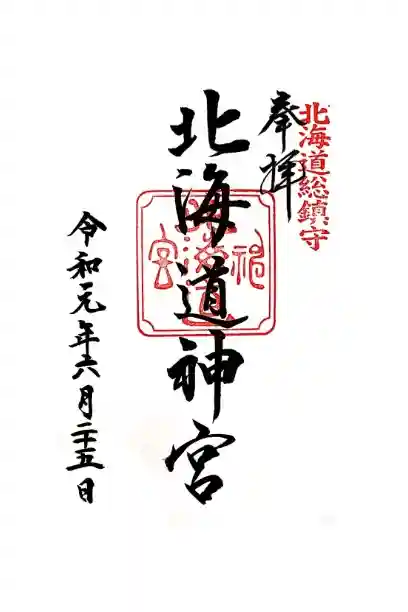 北海道総鎮守
奉拝
北海道神宮
令和元年六月二十五日